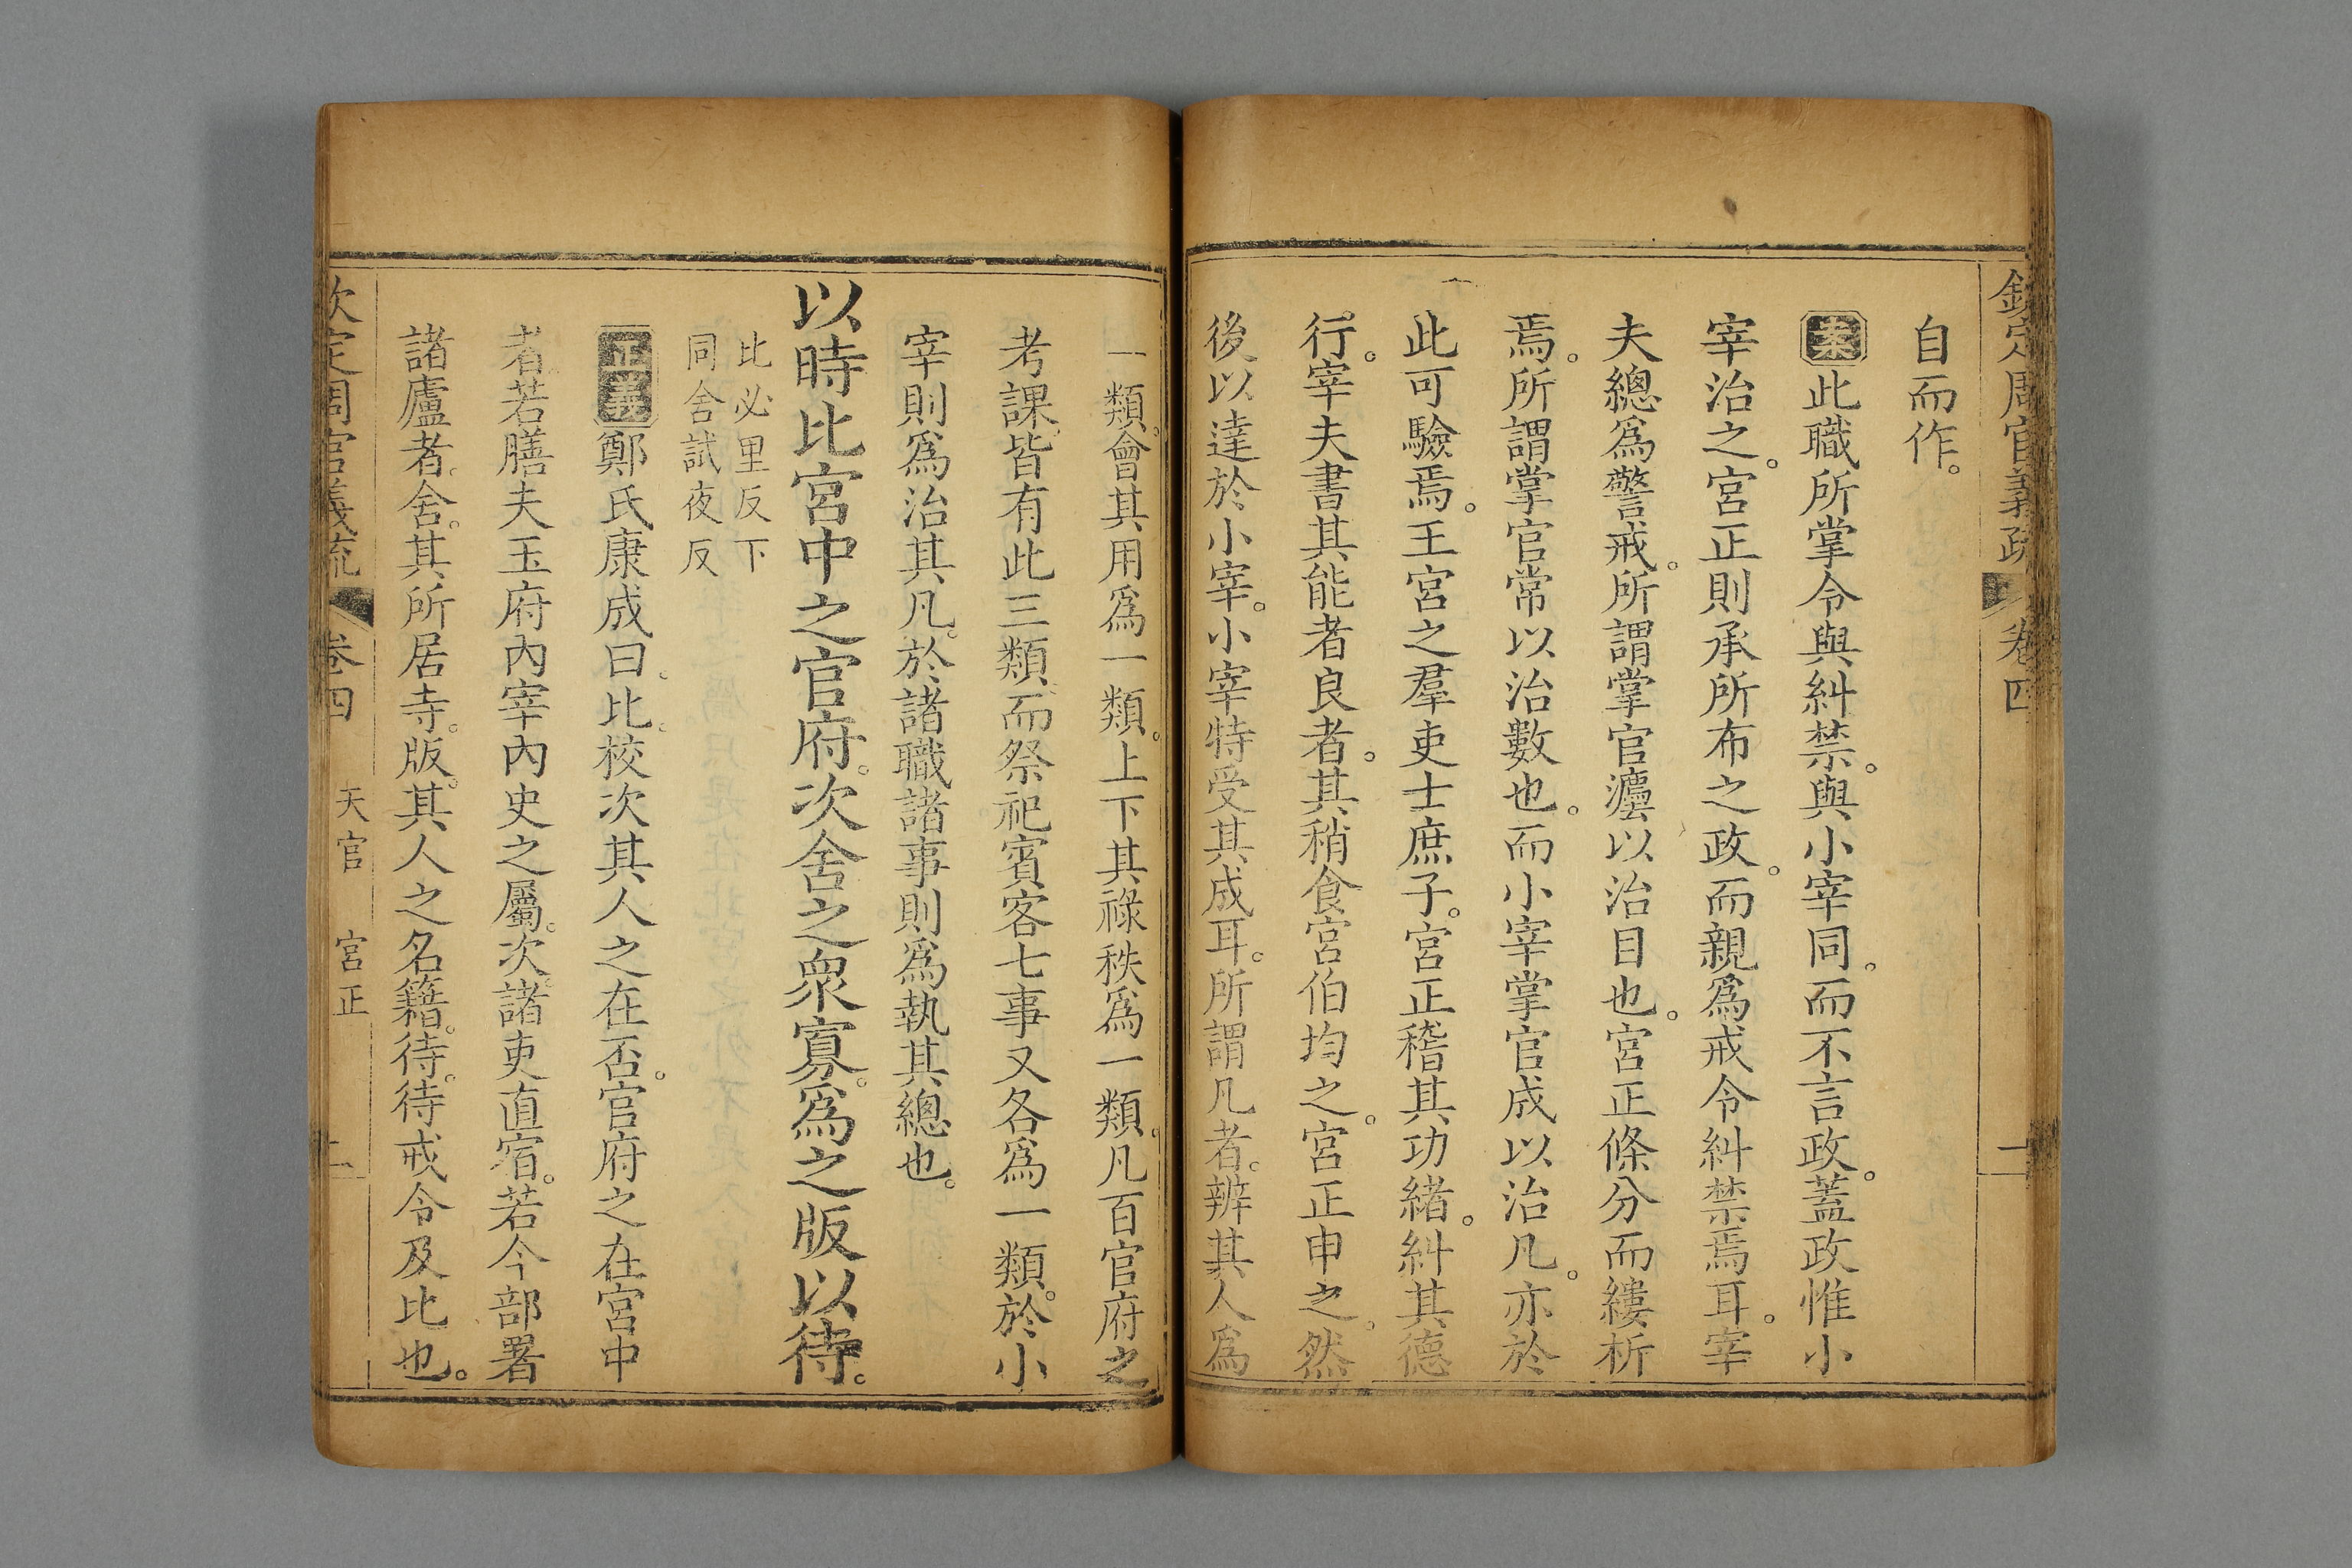 欽定周官義疏 卷四 一
自而作。
案此職所掌令與糾禁。與小宰同。而不言政。蓋政惟小
宰治之。宮正則承所布之政。而親爲戒令糾禁焉耳。宰
夫總爲警戒。所謂掌官灋以治目也。宮正條分而縷析
焉。所謂掌官常以治數也。而小宰掌官成以治凡。亦於
此可驗焉。王宮之羣吏士庶子。宮正稽其功緒。糾其德
行。宰夫書其能者良者。其稍食宮伯均之。宮正申之。然
後以達於小宰。小宰特受其成耳。所謂凡者。辨其人爲
一類。會其用爲一類。上下其祿秩爲一類。凡百官府之
考課。皆有此三類。而祭祀賓客七事又各爲一類。於小
宰則爲治其凡。於諸職諸事則爲執其總也。
以時比宮中之官府。次舍之眾寡。爲之版以待。
比必里反下
同舍試夜反
正義鄭氏康成曰。比。校次其人之在否。官府之在宮中
者。若膳夫玉府內宰內史之屬。次。諸吏直宿。若今部署
諸廬者。舍。其所居寺。版。其人之名籍。待。待戒令及比也。
欽定周官義疏 卷四 天官 宮正 二